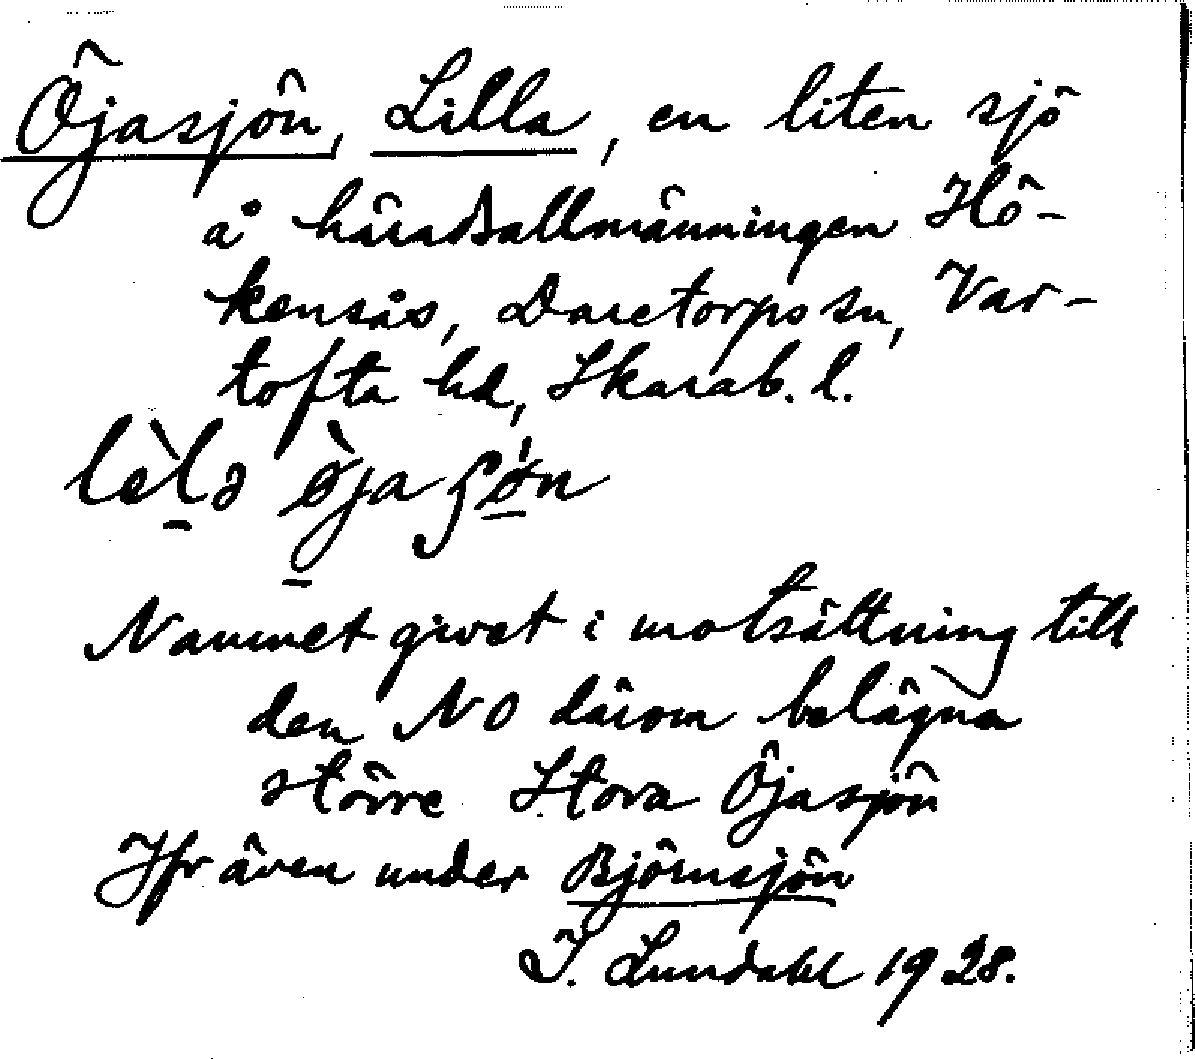 Öjasjön, Lilla, en liten sjö
å häradsallmänningen Hö-
kensås, Daretorps sn, Var-
tofta hd, Skarab. l.
lèlə ö̀jaʃö́n
Namnet givet i motsättning till
den NO därom belägna
större Stora Öjasjön
Jfr även under Björnsjön
I. Lundahl 1928.